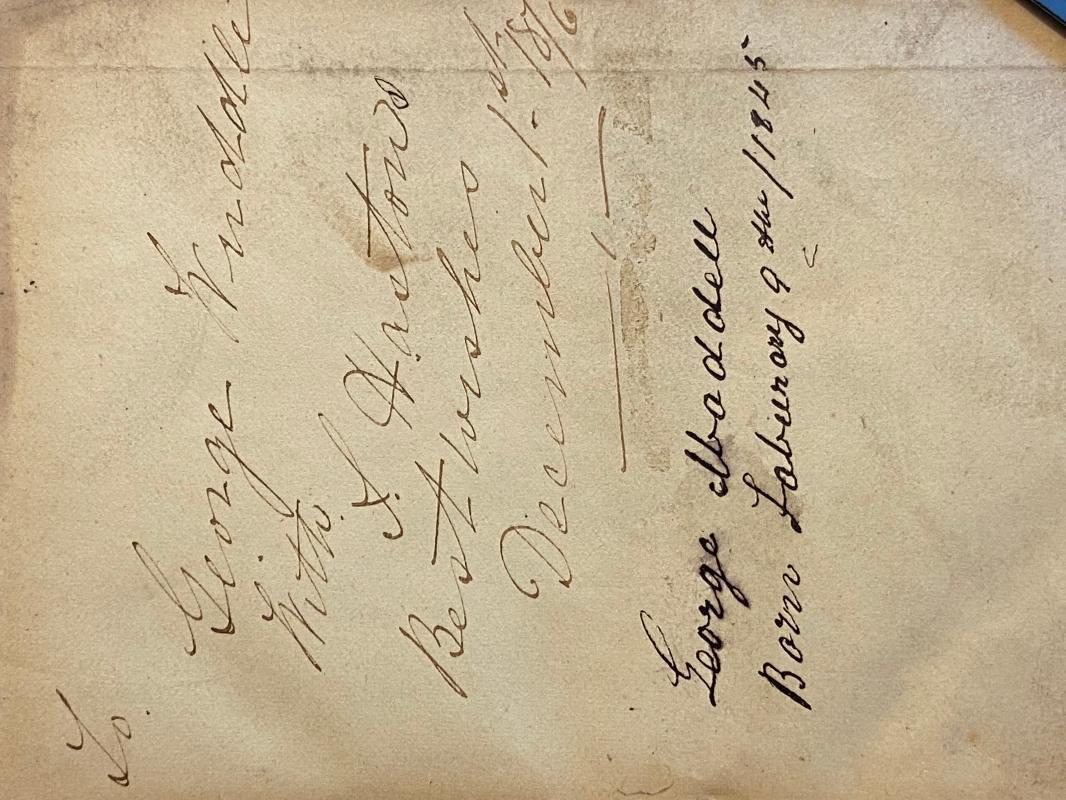 To.
George Waddell
With
J. Hastons
Best Wishes
December 1st 1876
George Waddell
Born Febuary 9 the / 1845